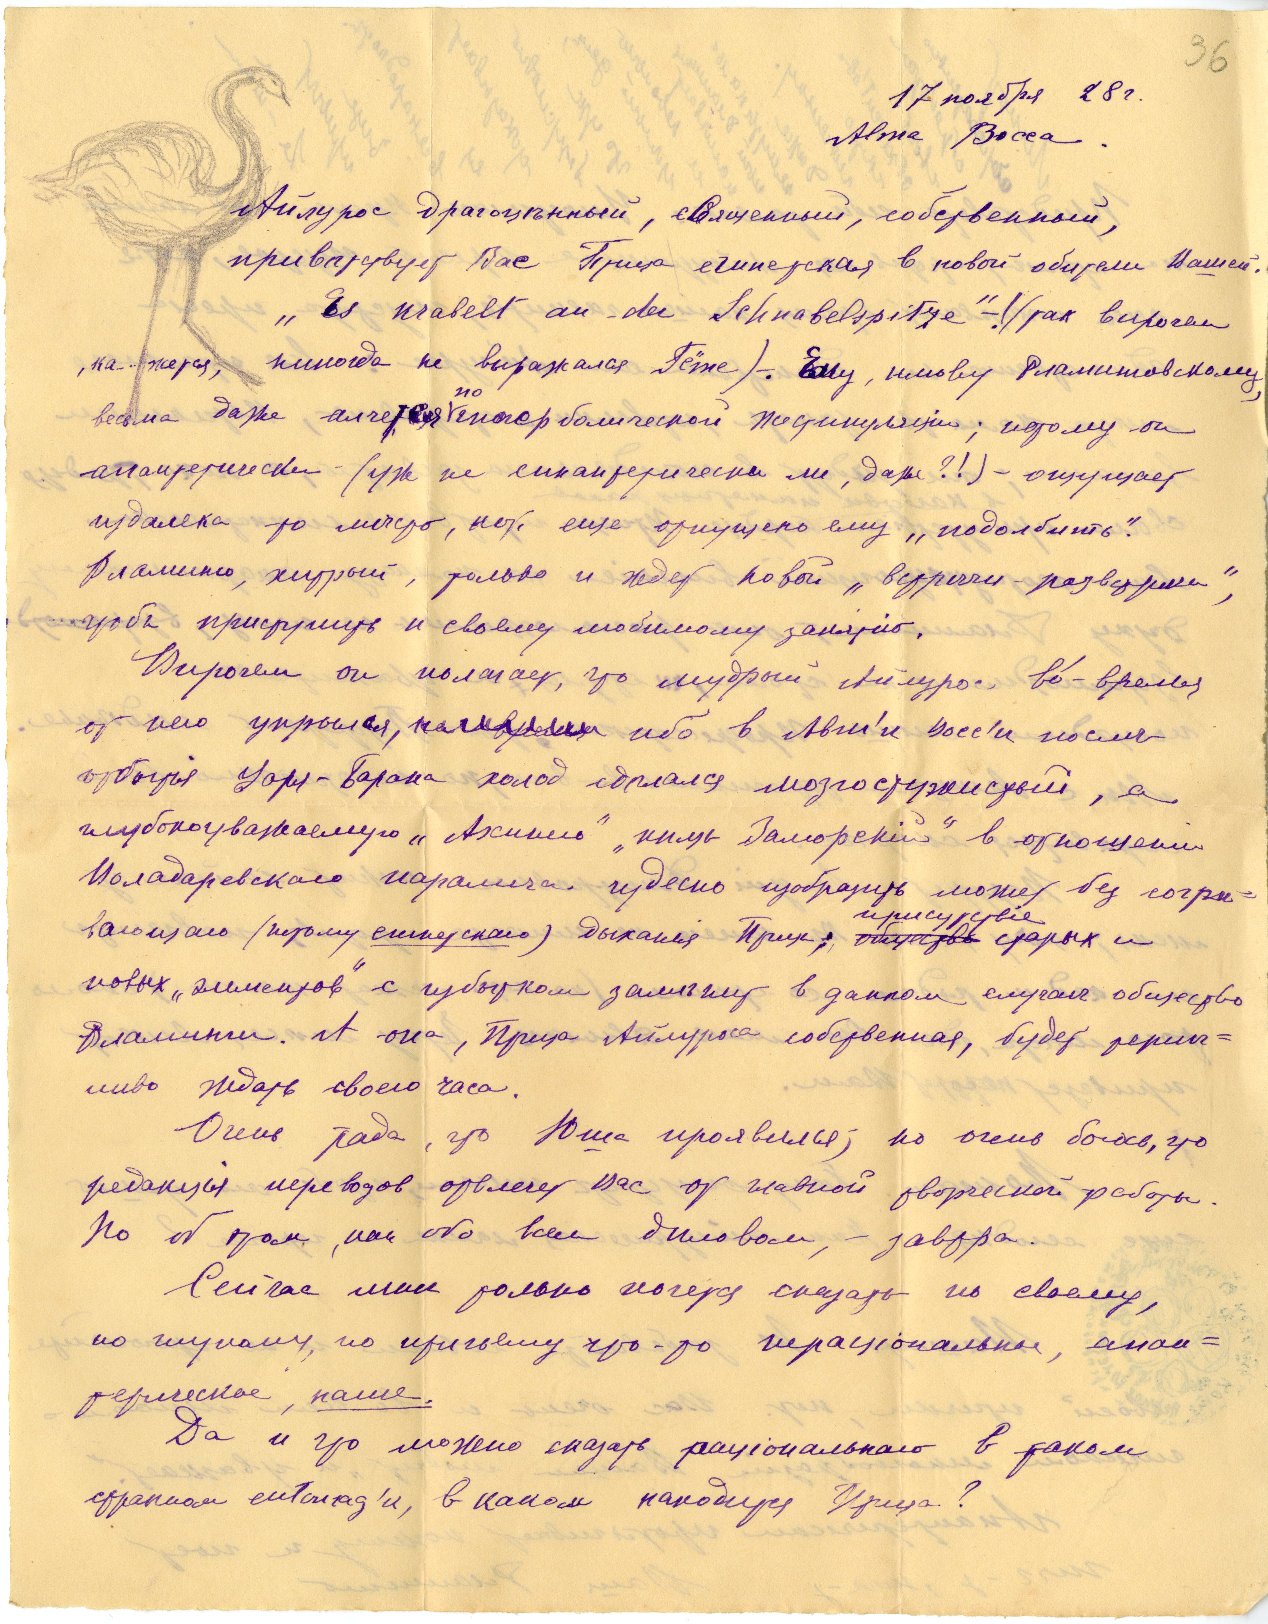 36
17 ноября 28 г.
Alma Bocca.
Айлурос драгоцѣнный, священный, собственный,
привѣтствует Вас Птица египетская в новой обители Вашей.
„Es krabelt an der Schnabelspitze“ –! (так впрочем
кажется, никогда не выражался Гёте). Ему, клюву Фламинговскому,
весьма даже алчется по гиперболической жестикуляціи; потому он
апоплетически – (уж не даже?!) – ощущает
издалека то мѣсто, кот. еще отпущено ему „подолбить“.
Фламинго, хитрый, только и ждет новой „встрѣчи – развстрѣчи“,
чтобы приступить к своему любимому занятію.
Впрочем он полагает, что мудрый Айлурос во́-время
от него укрылся, ибо в Alm'ѣ Bocc'ѣ послѣ
отбытія Царя-Барана холод сдѣлался мозгостужистый, а
глубокоуважаемую „Ахинею“ „князь Заморскій“ в отношеніи
паралича чудесно изобразить может без согрѣ=
вающаго (потому египетскаго) дыханія Птицы; присутствіе старых и
новых „элементов“ с избытком замѣнит в данном случаѣ общество
Фламинги. А она, Птица Айлуроса собственная, будет терпѣ=
ливо ждать своего часа.
Очень рада, что Юша проявилъся; но очень боюсь, что
редакція переводов отвлечет Вас от главной творческой работы.
Но об этом, как обо всем дѣловом, – завтра.
Сейчас мнѣ только хочется сказать по своему,
по глупому, по птичьему что-то ираціональное, апоп=
лектическое, наше.
Да и что можно сказать раціональнаго в таком
странном, в каком находится Птица?